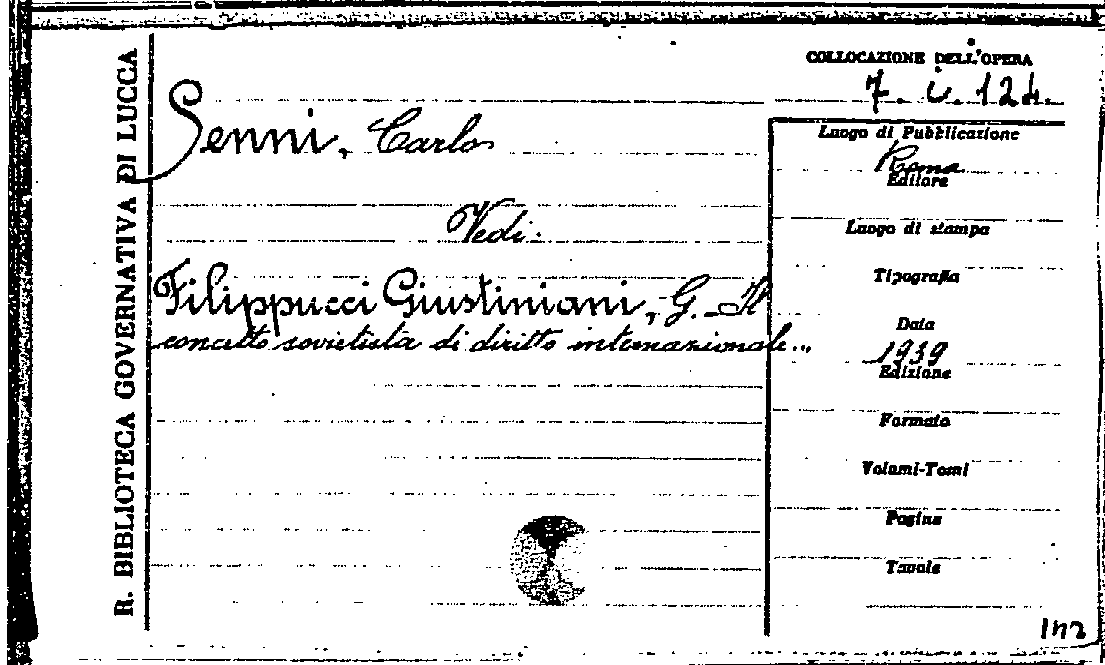 R. BIBLIOTECA GOVERNATIVA DI LUCCA
COLLOCAZIONE DELL'OPERA
7. i. 124.
Senni, Carlo
Vedi:
Filippucci Giustiniani, G. - Il
concetto sovietista di diritto internazionale...
Luogo di Pubblicazione
Roma
Editore
Luogo di stampa
Tipografia
Data
1939
Edizione
Formato
Volumi-Tomi
Pagine
Tavole